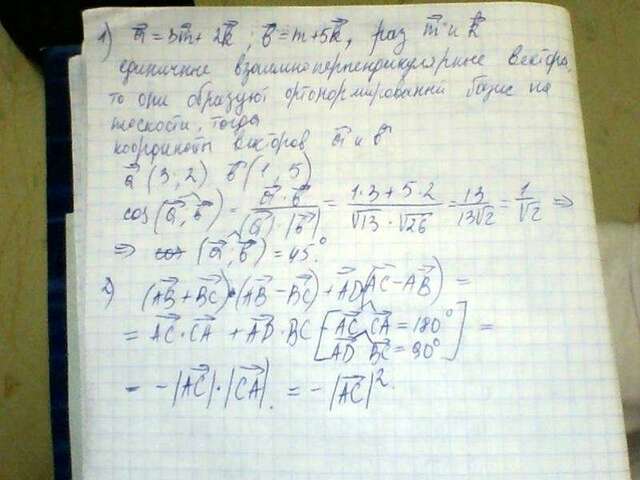 1) a⃗ = 3m⃗ + 2k⃗; b⃗ = m⃗ + 5k⃗, раз m⃗ и k⃗
единичные взаимноперпендикулярные вектора,
то они образуют ортонормированный базис на
плоскости, тогда
координаты векторов a⃗ и b⃗
a⃗ (3; 2) b⃗ (1, 5)
cos(a⃗, b⃗) = a⃗·b⃗ / |a⃗|·|b⃗| = 1·3 + 5·2 / √13·√26 = 13 / 13√2 = 1/√2 ⇒
⇒ (a⃗, b⃗) = 45°
2) (AB⃗ + BC⃗)·(AB⃗ − BC⃗) + AD⃗(AC⃗ − AB⃗) =
= AC⃗·CA⃗ + AD⃗·BC⃗ [AC⃗ CA⃗ = 180°
AD⃗ BC⃗ = 90°] =
= −|AC⃗|·|CA⃗| = −|AC⃗|².